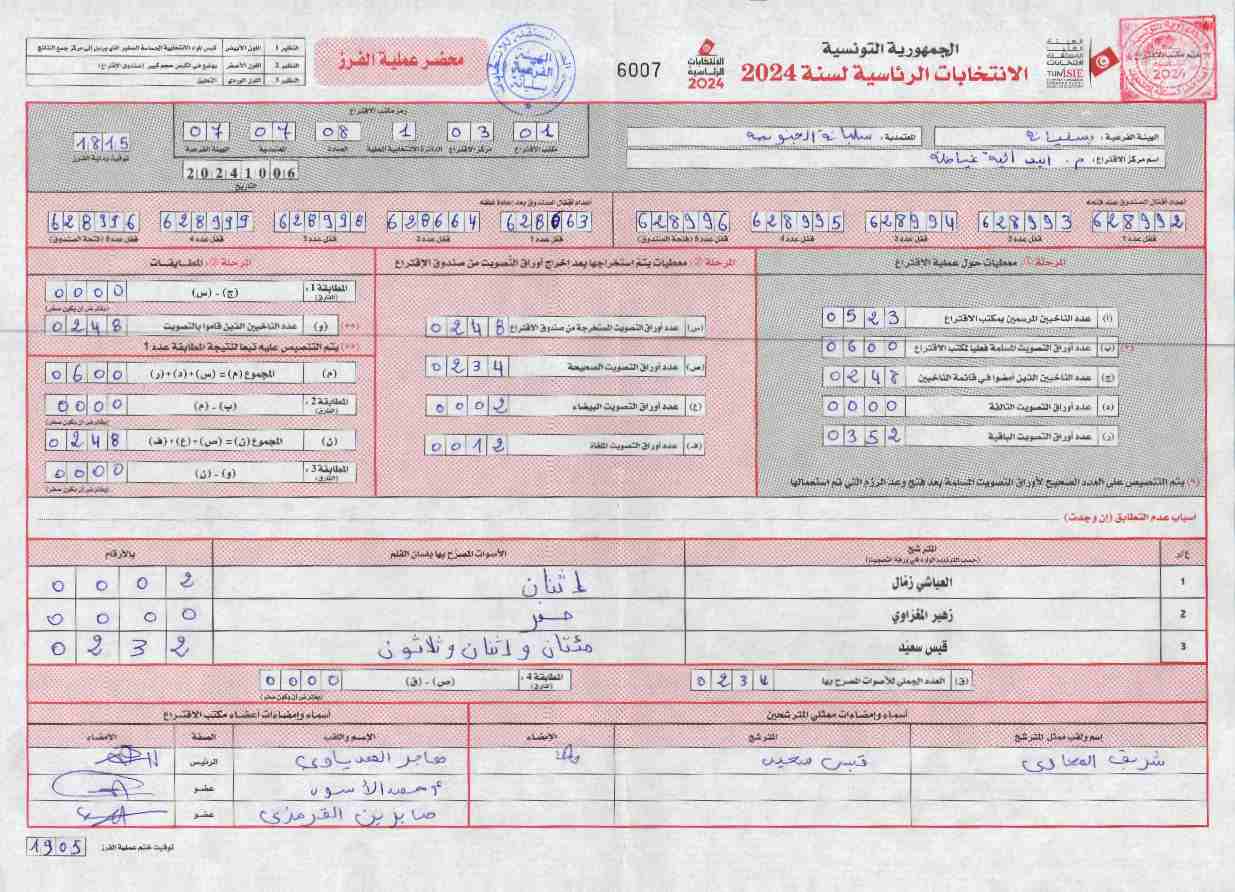 الجمهورية التونسية
الانتخابات الرئاسية لسنة 2024
الهيئة العليا المستقلة للانتخابات
TUNISIE
الانتخابات الرئاسية 2024
6007
محضر عملية الفرز
النظير 1 اللون الأبيض
النظير 2 اللون الأصفر
النظير 3 اللون الوردي التعليق
الهيئة الفرعية : سليانة
المعتمدية : سليانة الجنوبية
اسم مركز الاقتراع :
رمز مكتب الاقتراع
01 03 1 08 07 07
مكتب الاقتراع مركز الاقتراع الدائرة الانتخابية المحلية العمادة المعتمدية الهيئة الفرعية
20241006
التاريخ
1815
توقيت بداية الفرز
أعداد أقفال الصندوق عند فتحه
628992 628993 628994 628995 628996
قفل عدد 1 قفل عدد 2 قفل عدد 3 قفل عدد 4 قفل عدد 5 (فتحة الصندوق)
أعداد أقفال الصندوق بعد إعادة غلقه
628663 628664 628998 628999
قفل عدد 1 قفل عدد 2 قفل عدد 3 قفل عدد 4 قفل عدد 5 (فتحة الصندوق)
المرحلة 1: معطيات حول عملية الاقتراع
(أ) عدد الناخبين المرسمين بمكتب الاقتراع 0523
(*) (ب) عدد أوراق التصويت المسلمة فعليا لمكتب الاقتراع 0600
(ج) عدد الناخبين الذين أمضوا في قائمة الناخبين 0248
(د) عدد أوراق التصويت التالفة 0000
(ر) عدد أوراق التصويت الباقية 0352
(*) يتم التنصيص على العدد الصحيح لأوراق التصويت المسلمة بعد فتح وعد الرزم التي تم استعمالها
المرحلة 2: معطيات يتم استخراجها بعد اخراج أوراق التصويت من صندوق الاقتراع
(س) عدد أوراق التصويت المستخرجة من صندوق الاقتراع 0248
(ص) عدد أوراق التصويت الصحيحة 0234
(ع) عدد أوراق التصويت البيضاء 0002
(ف) عدد أوراق التصويت الملغاة 0012
المرحلة 3: المطابقات
المطابقة 1 : (الفارق) (ج) - (س) 0000
(يفترض أن يكون صفر)
(**) (و) عدد الناخبين الذين قاموا بالتصويت 0248
(**) يتم التنصيص عليه تبعا لنتيجة المطابقة عدد 1
(م) المجموع (م) = (س) + (د) + (ر) 0600
المطابقة 2 : (الفارق) (ب) - (م) 0000
(يفترض أن يكون صفر)
(ن) المجموع (ن) = (ص) + (ع) + (ف) 0248
المطابقة 3 : (الفارق) (و) - (ن) 0000
(يفترض أن يكون صفر)
اسباب عدم التطابق (إن وجدت)
ع/ر المترشح الأصوات المصرح بها بلسان القلم بالأرقام
(حسب الترتيب الوارد في ورقة التصويت)
1 العياشي زمال اثنان 0002
2 زهير المغزاوي صفر 0000
3 قيس سعيّد مئتان و اثنان و ثلاثون 0232
(ق) العدد الجملي للأصوات المصرح بها 0234
المطابقة 4 : (الفارق) (ص) - (ق) 0000
(يفترض أن يكون صفر)
أسماء وإمضاءات ممثلي المترشحين
إسم ولقب ممثل المترشح المترشح الإمضاء
شريف قيس سعيد
أسماء وإمضاءات أعضاء مكتب الاقتراع
الإسم واللقب الصفة الامضاء
هاجر الرئيس
أحمد الأسود عضو
صابر بن القرمزي عضو
توقيت ختم عملية الفرز 1905